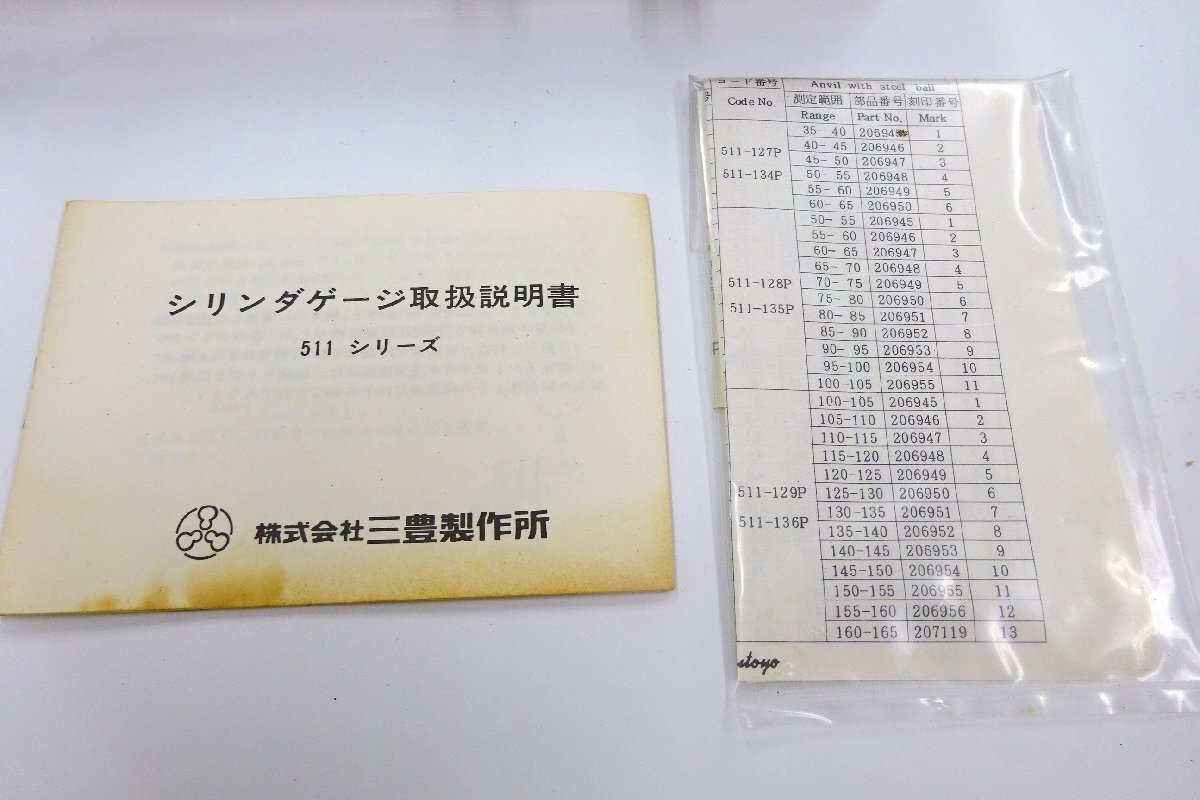 シリンダゲージ取扱説明書
511 シリーズ
株式会社三豊製作所
コード番号 Anvil with steel ball
Code No. 測定範囲 部品番号 刻印番号
Range Part No. Mark
35- 40 1
40- 45 206946 2
511-127P 45- 50 206947 3
511-134P 50- 55 206948 4
55- 60 206949 5
60- 65 206950 6
50- 55 206945 1
55- 60 206946 2
60- 65 206947 3
65- 70 206948 4
511-128P 70- 75 206949 5
75- 80 206950 6
511-135P 80- 85 206951 7
85- 90 206952 8
90- 95 206953 9
95-100 206954 10
100-105 206955 11
100-105 206945 1
105-110 206946 2
110-115 206947 3
115-120 206948 4
120-125 206949 5
511-129P 125-130 206950 6
130-135 206951 7
511-136P 135-140 206952 8
140-145 206953 9
145-150 206954 10
150-155 206955 11
155-160 206956 12
160-165 207119 13
utoyo